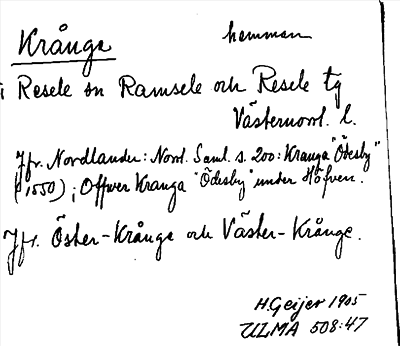 Krånge hemman
i Resele sn Ramsele och Resele tg
Västernorrl. l.
Jfr. Nordlander: Norrl. Saml. s. 200: Kranga "Ödesby"
(1550); Offver Kranga "Ödesby" under Höfven.
Jfr. Öster-Krånge och Väster-Krånge.
H. Geijer 1905
ULMA 508:47